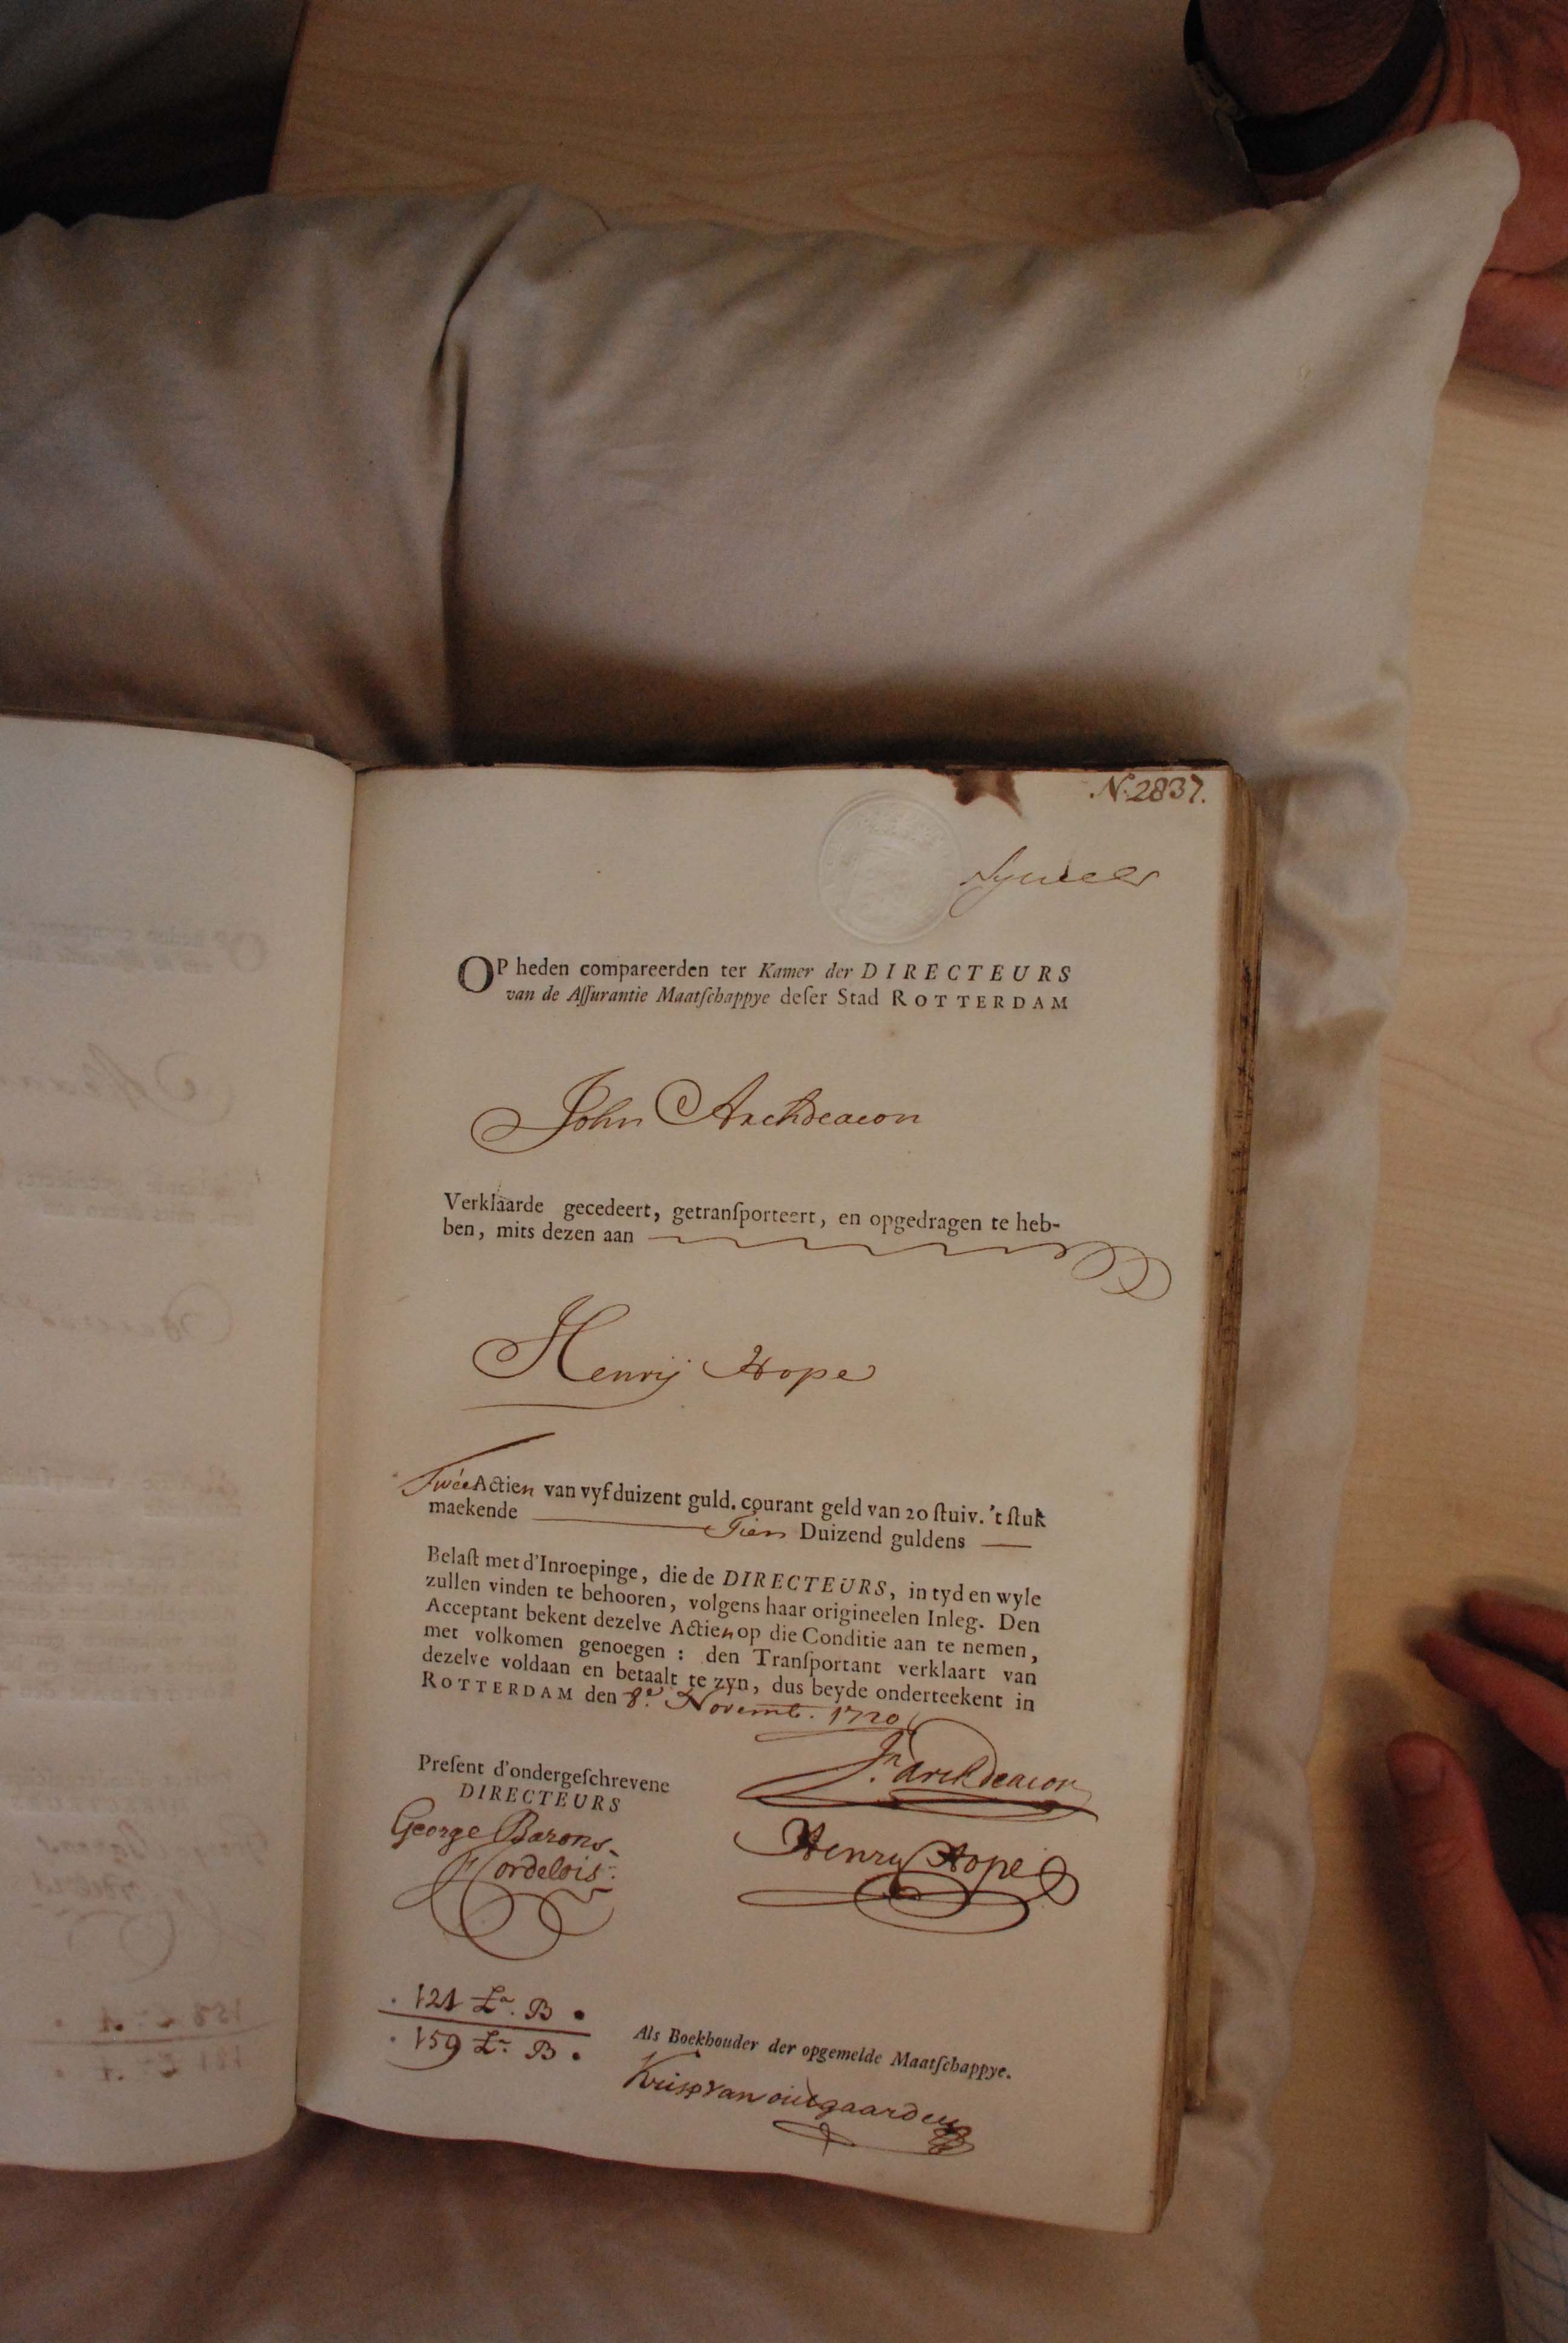 N. 2837.
OP heden compareerden ter Kamer der DIRECTEURS
van de Aſſurantie Maatſchappye deſer Stad ROTTERDAM
John Archdeacon
Verklaarde gecedeert, getranſporteert, en opgedragen te heb-
ben, mits dezen aan
Henrij Hope
Twée Actien van vyf duizent guld. courant geld van 20 ſtuiv. 't ſtuk
maekende Tien Duizend guldens
Belaſt met d'Inroepinge, die de DIRECTEURS, in tyd en wyle
zullen vinden te behooren, volgens haar origineelen Inleg. Den
Acceptant bekent dezelve Actien op die Conditie aan te nemen,
met volkomen genoegen : den Tranſportant verklaart van
dezelve voldaan en betaalt te zyn, dus beyde onderteekent in
ROTTERDAM den 8.e Novemb. 1720
Preſent d'ondergeſchrevene
DIRECTEURS
Jn. Archdeacon
George Barons
Henry Hope
121 La. B
159 La. B
Als Boekhouder der opgemelde Maatſchappye.